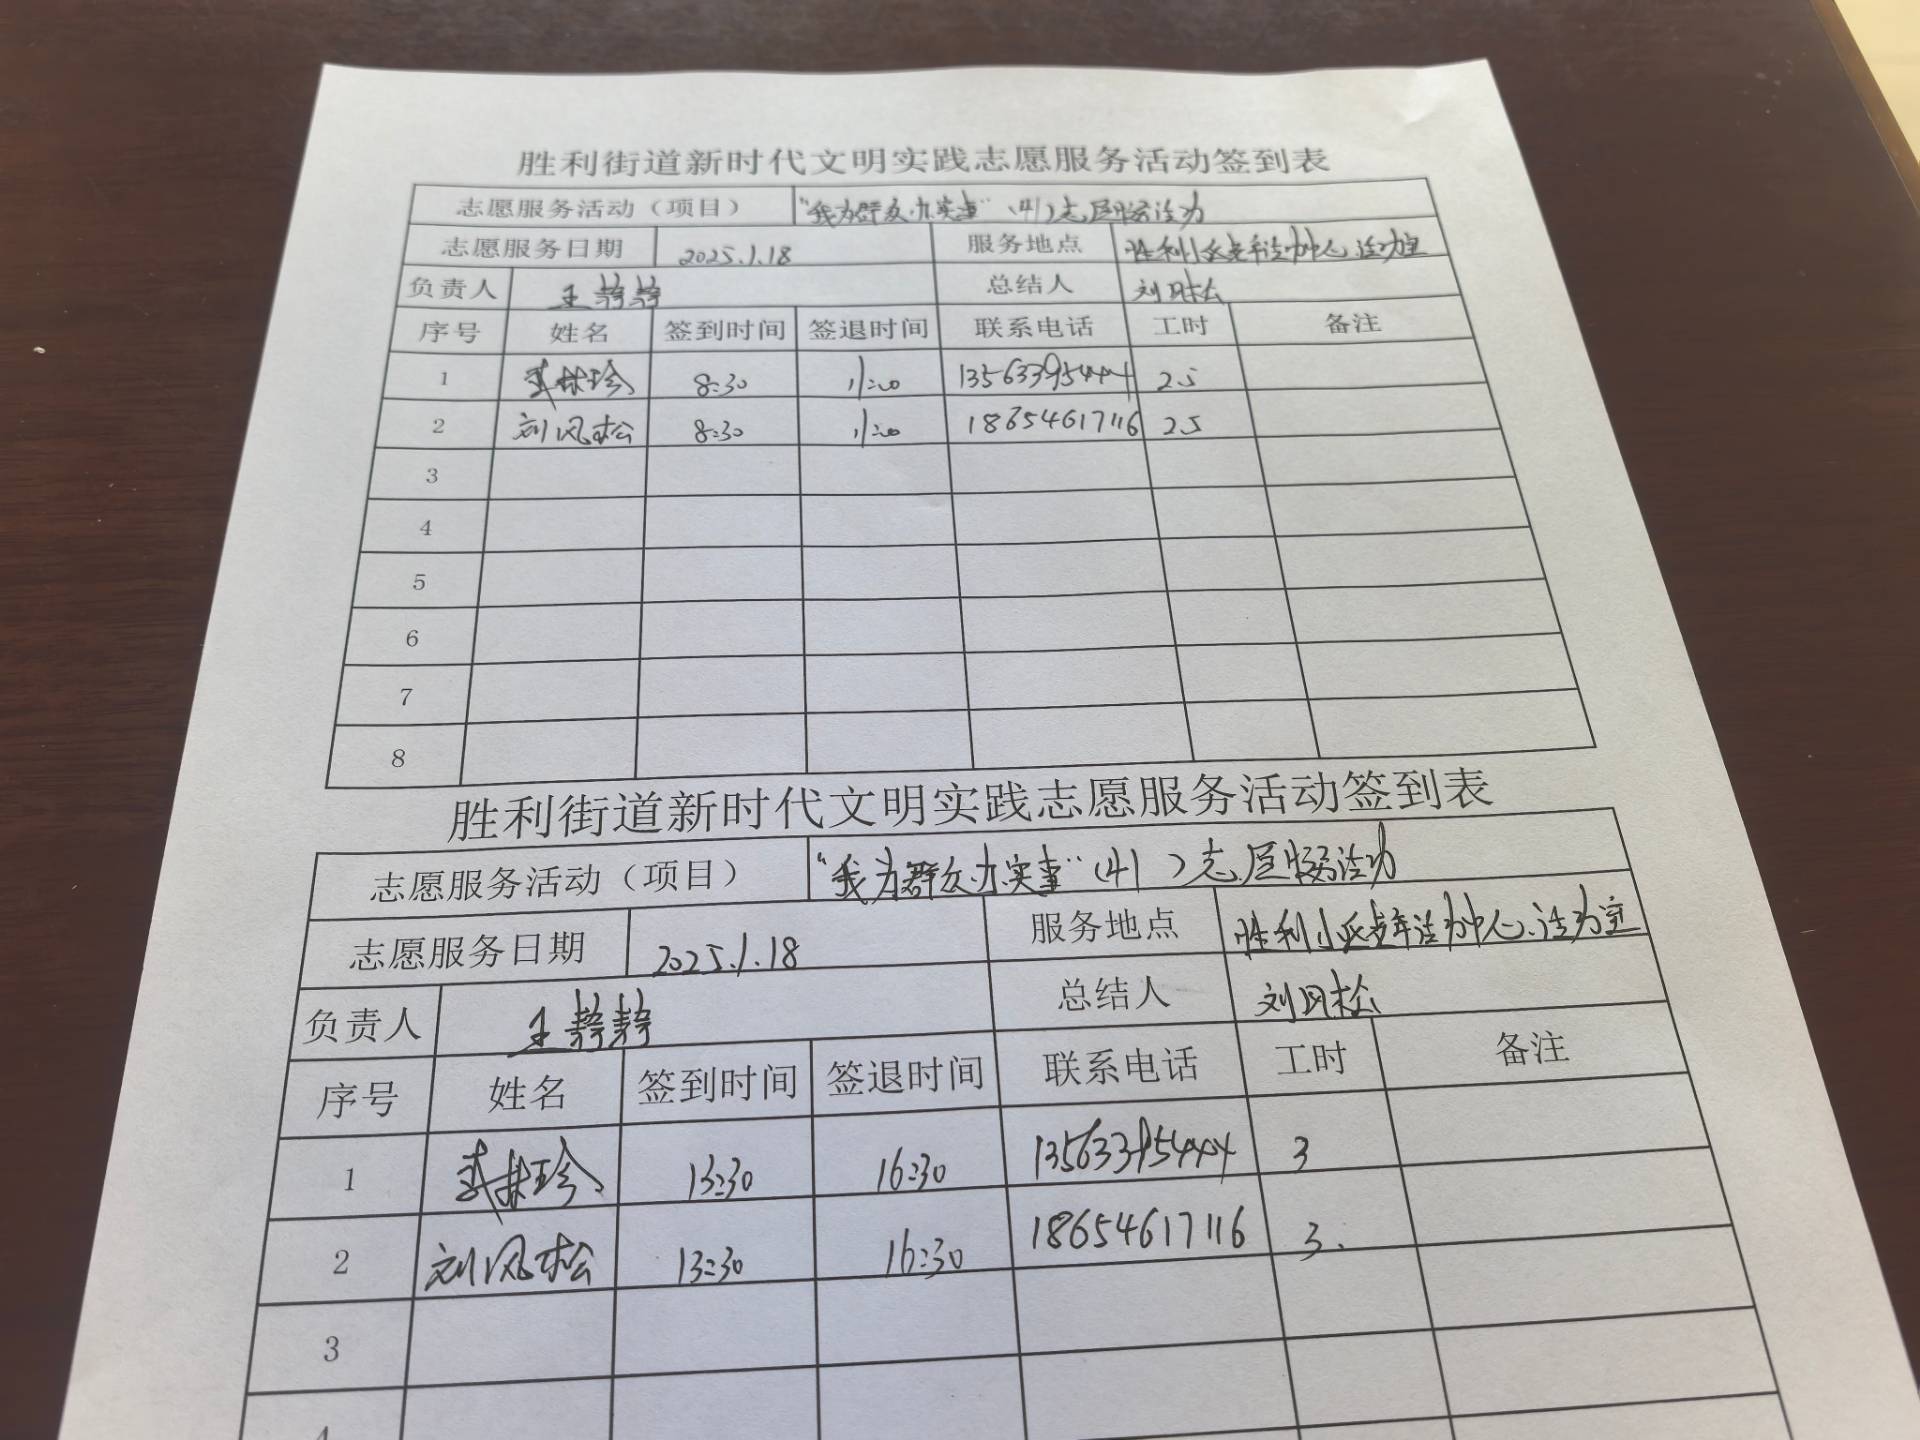 胜利街道新时代文明实践志愿服务活动签到表
志愿服务活动（项目） “我为群众办实事”（41）志愿服务活动
志愿服务日期 2025.1.18 服务地点 胜利小区老年活动中心、活动室
负责人 王静静 总结人 刘风松
序号 姓名 签到时间 签退时间 联系电话 工时 备注
1 林珍 8:30 11:00 13563395444 2.5
2 刘风松 8:30 11:00 18654617116 2.5
3
4
5
6
7
8
胜利街道新时代文明实践志愿服务活动签到表
志愿服务活动（项目） “我为群众办实事”（41）志愿服务活动
志愿服务日期 2025.1.18 服务地点 胜利小区老年活动中心、活动室
负责人 王静静 总结人 刘风松
序号 姓名 签到时间 签退时间 联系电话 工时 备注
1 林珍 13:30 16:30 13563395444 3
2 刘风松 13:30 16:30 18654617116 3.
3
4